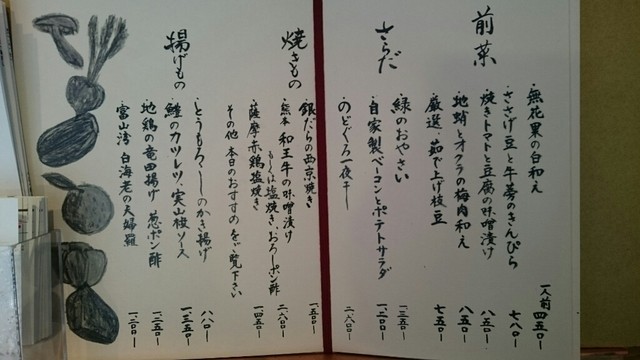 前菜
・無花果の白和え 一人前 四五〇ー
・ささげ豆と牛蒡のきんぴら 七八〇ー
・焼きトマトと豆腐の味噌漬け 八五〇ー
・地蛸とオクラの梅肉和え 八五〇ー
・厳選・茹で上げ枝豆 七五〇ー
さらだ
・緑のおやさい 一、三五〇ー
・自家製ベーコンとポテトサラダ 一、二〇〇ー
・のどぐろ一夜干し 二、八〇〇ー
焼きもの
・銀だらの西京焼き 一、五〇〇ー
・熊本 和王牛の味噌漬け
もしくは塩焼き・おろしポン酢 二、六〇〇ー
・薩摩赤鶏塩焼き 一、四五〇ー
その他 本日のおすすめをご覧下さい
揚げもの
・とうもろこしのかき揚げ 八八〇ー
・鱧のカツレツ・実山椒ソース 一、三五〇ー
・地鶏の竜田揚げ 葱ポン酢 一、二五〇ー
・富山湾 白海老の天婦羅 一、二〇〇ー